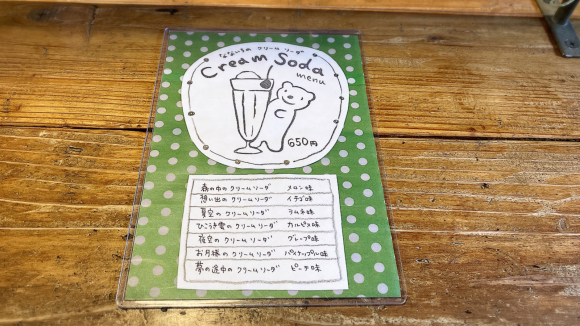 なないろの クリームソーダ
Cream Soda
menu
650円
森の中の クリームソーダ メロン味
想い出の クリームソーダ イチゴ味
夏空の クリームソーダ ラムネ味
ひこうき雲の クリームソーダ カルピス味
夜空の クリームソーダ グレープ味
お月様の クリームソーダ パイナップル味
夢の途中の クリームソーダ ピーチ味